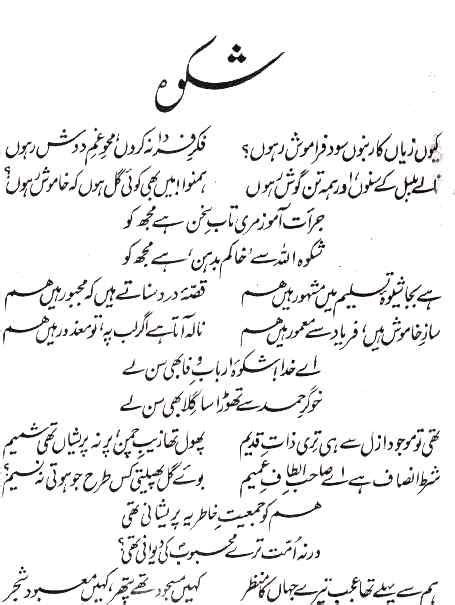 شکوہ
کیوں زیاں کار بنوں سود فراموش رہوں؟ فکرِ فردا نہ کروں، محوِ غمِ دوش رہوں
نالے بلبل کے سنوں، اور ہمہ تن گوش رہوں ہمنوا! میں بھی کوئی گل ہوں کہ خاموش رہوں؟
جرأت آموز مری تابِ سخن ہے مجھ کو
شکوہ اللہ سے ’خاکم بدہن‘ ہے مجھ کو
ہے بجا شیوۂ تسلیم میں مشہور ہیں ہم قصۂ درد سناتے ہیں کہ مجبور ہیں ہم
سازِ خاموش ہیں، فریاد سے معمور ہیں ہم نالہ آتا ہے اگر لب پہ، تو معذور ہیں ہم
اے خدا! شکوۂ اربابِ وفا بھی سن لے
خوگرِ حمد سے تھوڑا سا گلا بھی سن لے
تھی تو موجود ازل سے ہی تری ذاتِ قدیم پھول تھا زیبِ چمن، پر نہ پریشاں تھی شمیم
شرط انصاف ہے اے صاحبِ الطافِ عمیم بوئے گل پھیلتی کس طرح جو ہوتی نہ نسیم؟
ہم کو جمعیتِ خاطر یہ پریشانی تھی
ورنہ امت ترے محبوبؐ کی دیوانی تھی؟
ہم سے پہلے تھا عجب تیرے جہاں کا منظر کہیں مسجود تھے پتھر، کہیں معبود شجر